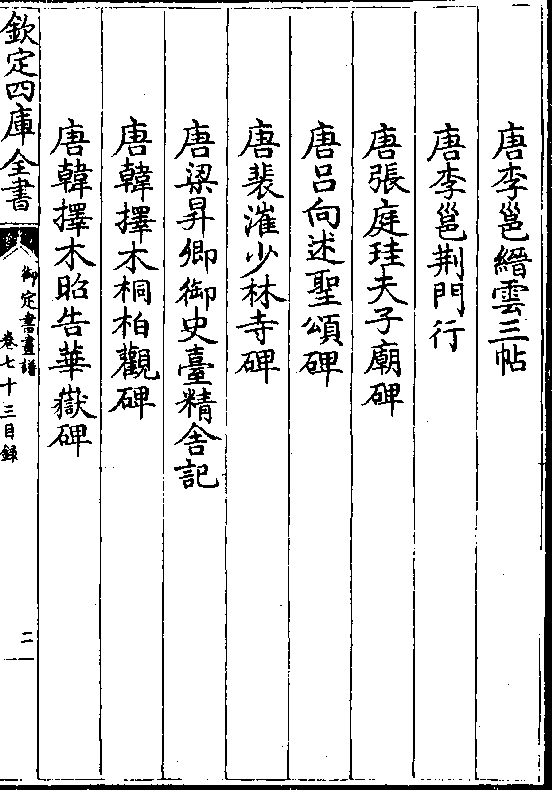 唐李邕縉雲三帖
唐李邕荆門行
唐張庭珪夫子廟碑
唐吕向述聖頌碑
唐裴漼少林寺碑
唐梁昇卿御史臺精舍記
唐韓擇木桐柏觀碑
唐韓擇木昭告華嶽碑
欽定四庫全書
御定書畫譜
卷七十三目錄
二